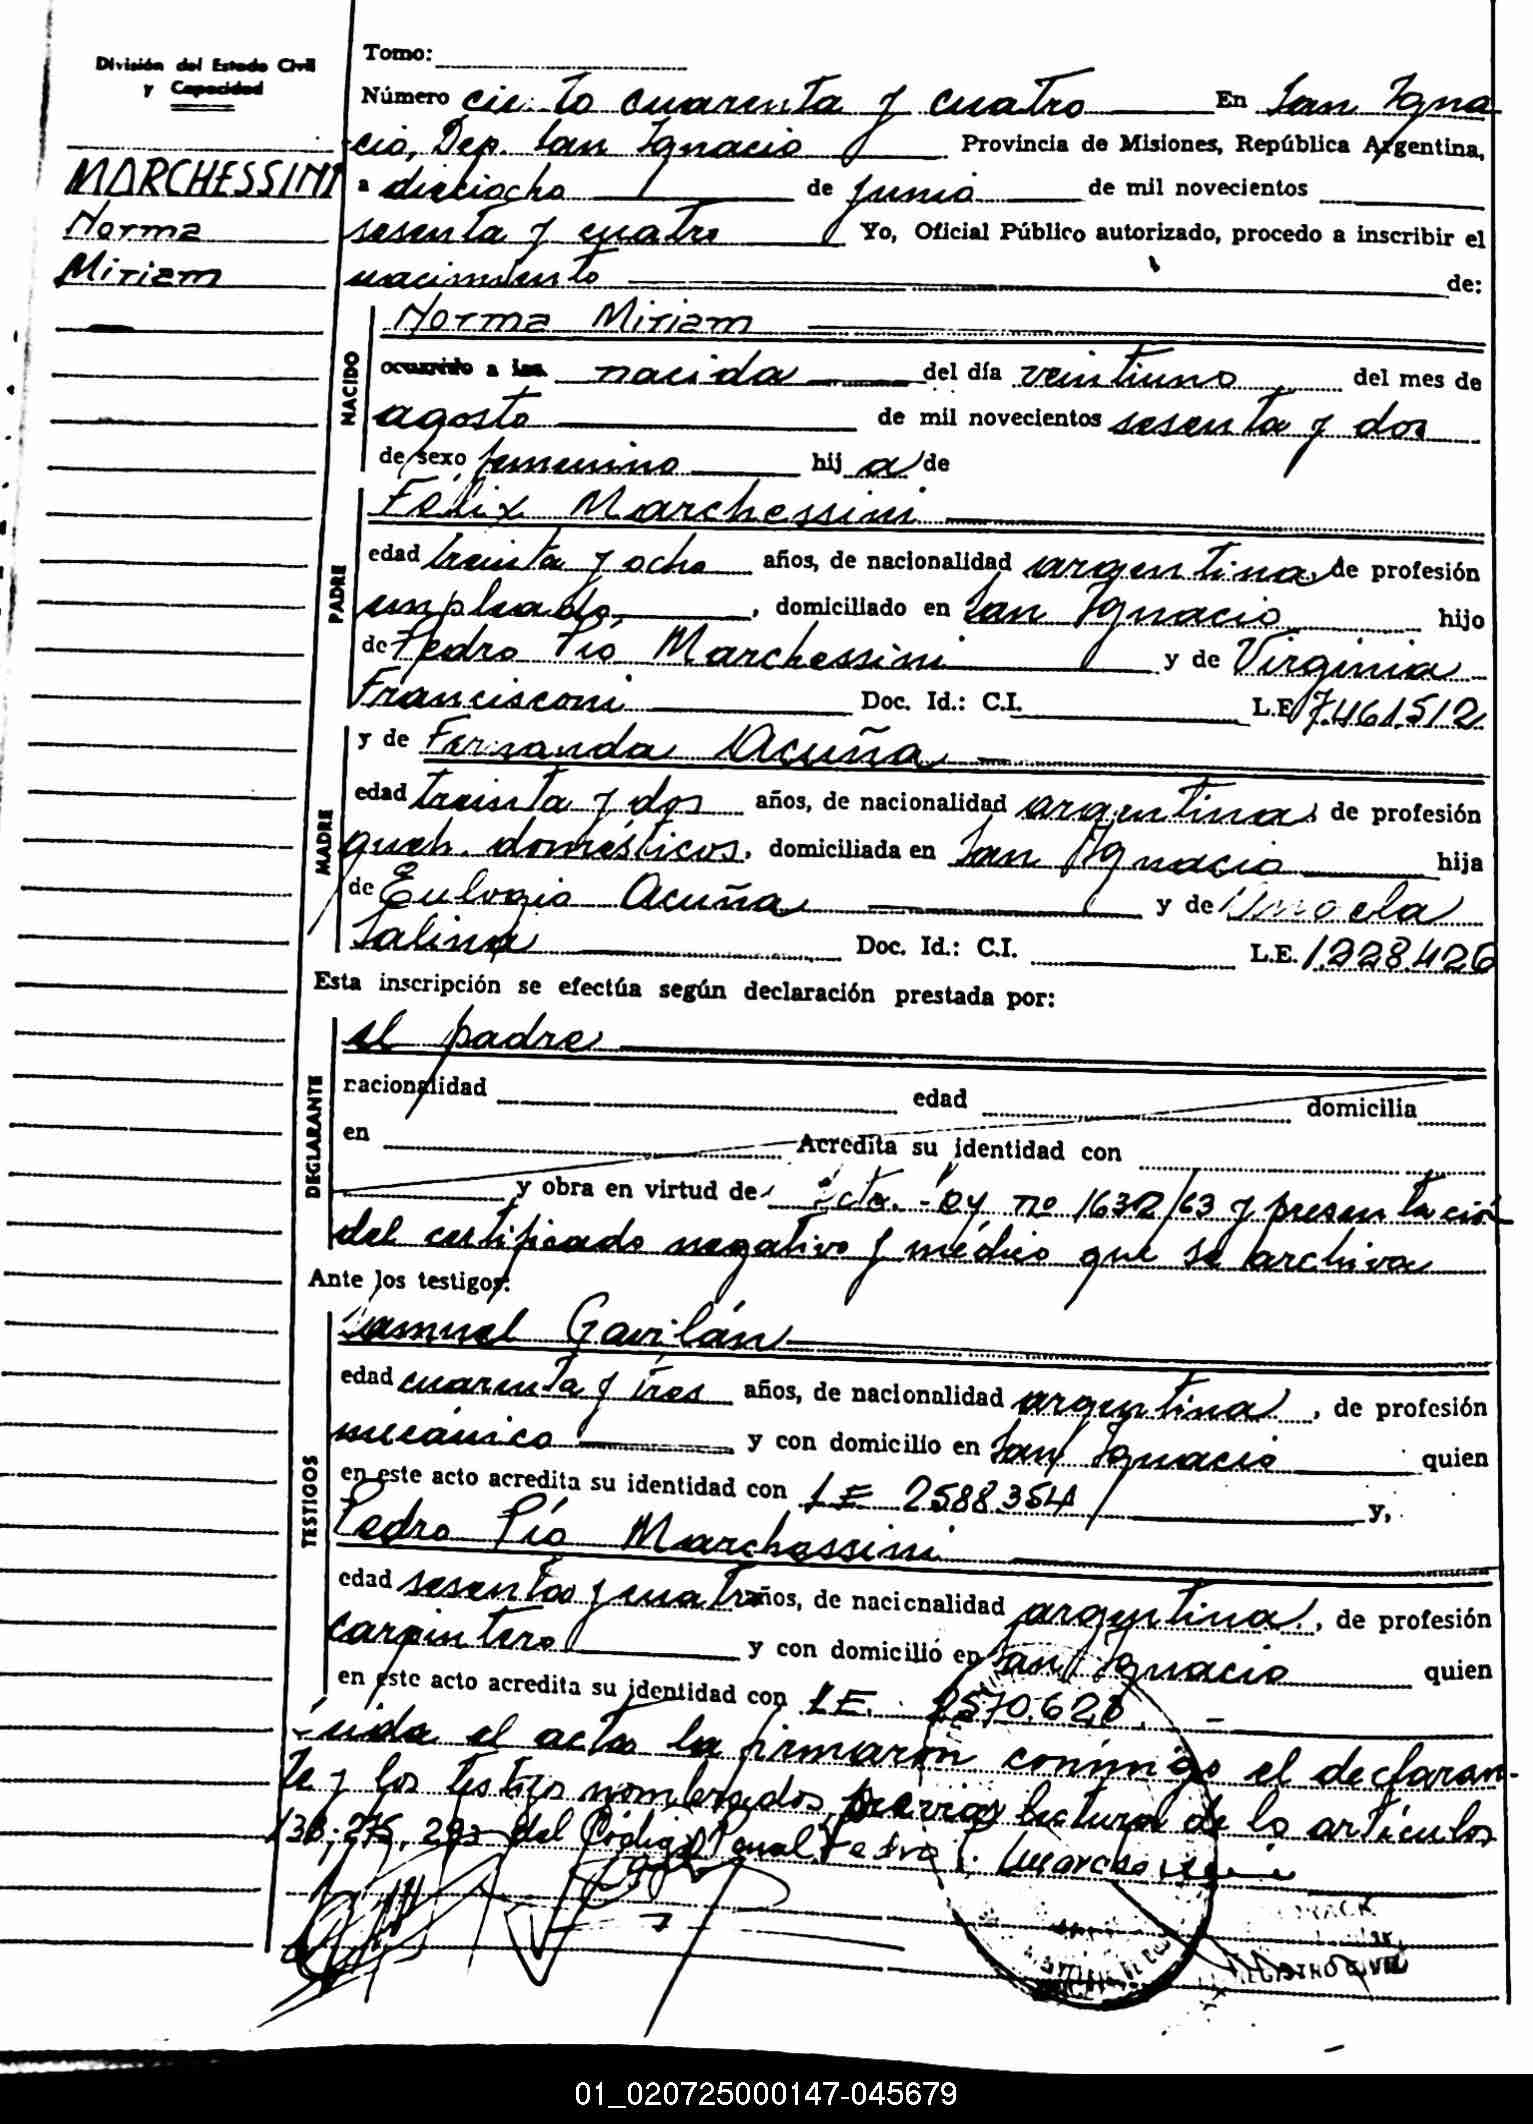 División del Estado Civil
y Capacidad
MARCHESSINI
Norma
Miriam
Tomo:
Número ciento cuarenta y cuatro En San Igna
cio, Dep. San Ignacio Provincia de Misiones, República Argentina,
a dieciocho de junio de mil novecientos
sesenta y cuatro Yo, Oficial Público autorizado, procedo a inscribir el
nacimiento de:
NACIDO
Norma Miriam
ocurrido a las nacida del día veintiuno del mes de
agosto de mil novecientos sesenta y dos
de sexo femenino hij a de
PADRE
Félix Marchessini
edad treinta y ocho años, de nacionalidad argentina, de profesión
empleado, domiciliado en San Ignacio hijo
de Pedro Pío Marchessini y de Virginia
Francisconi Doc. Id.: C.I. L.E. 7.461.512
MADRE
y de Fernanda Acuña
edad treinta y dos años, de nacionalidad argentina, de profesión
queh. domésticos, domiciliada en San Ignacio hija
de Eulogio Acuña y de
Salina Doc. Id.: C.I. L.E. 1.228.426
Esta inscripción se efectúa según declaración prestada por:
DECLARANTE
el padre
nacionalidad edad domicilia
en Acredita su identidad con
y obra en virtud de Dcto. Ley nº 1632/63 y presentación
del certificado negativo y médico que se archiva
Ante los testigos:
TESTIGOS
Samuel Gavilán
edad cuarenta y tres años, de nacionalidad argentina, de profesión
mecánico y con domicilio en San Ignacio quien
en este acto acredita su identidad con LE 2.588.354 y,
Pedro Pío Marchessini
edad sesenta y cuatro años, de nacionalidad argentina, de profesión
carpintero y con domicilio en San Ignacio quien
en este acto acredita su identidad con LE. 2.570.628
Leída el acta la firmaron conmigo el declaran-
te y los testigos nombrados, previa lectura de los artículos
138, 275, 293 del Código Penal Pedro P. Marchessini
REGISTRO CIVIL
01_020725000147-045679